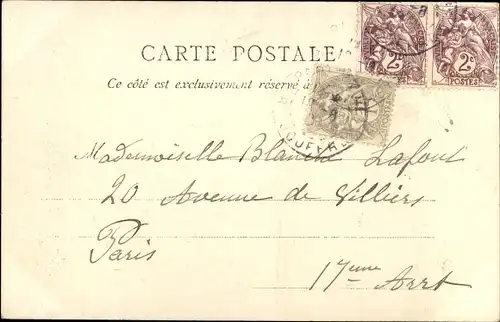 CARTE POSTALE
Ce côté est exclusivement réservé à
2c 2c
POSTES POSTES
Mademoiselle Blanche Lafont
20 Avenue de Villiers
Paris
17eme Arrt